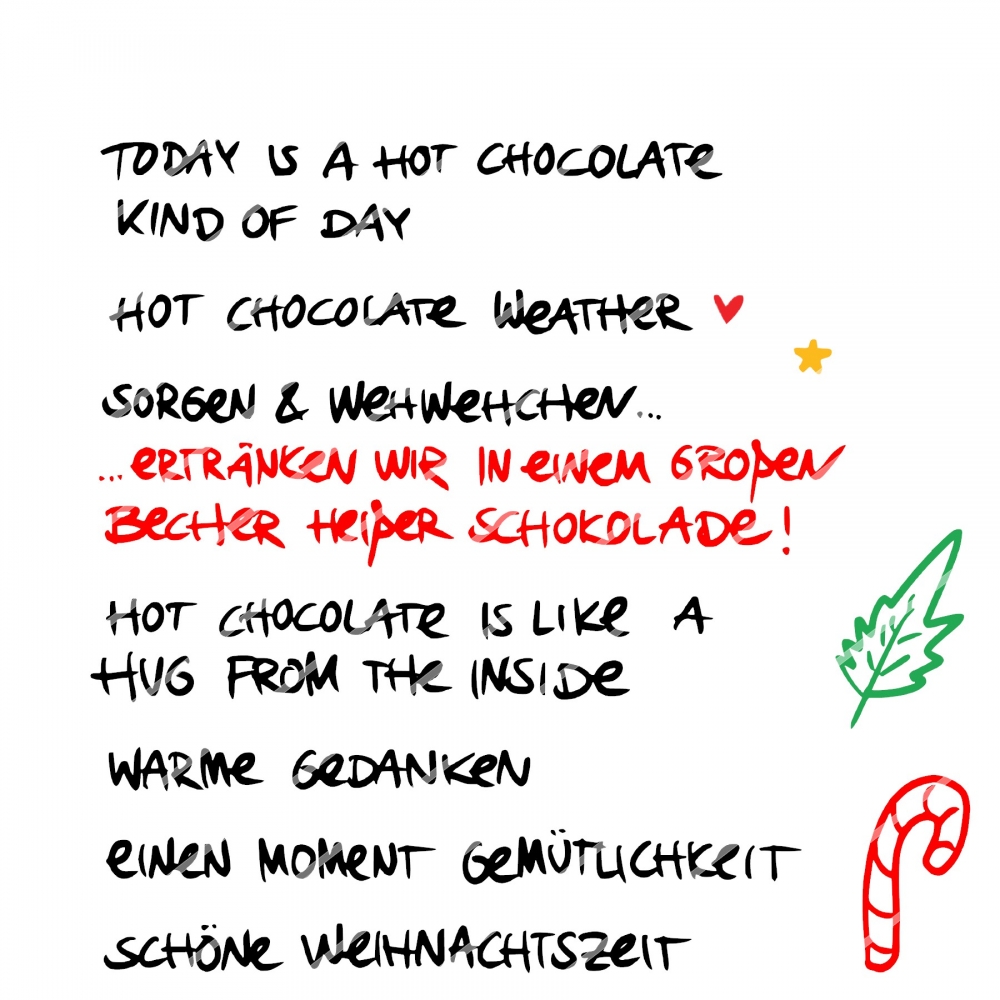 TODAY IS A HOT CHOCOLATE
KIND OF DAY
HOT CHOCOLATE WEATHER
SORGEN & WEHWEHCHEN...
...ERTRÄNKEN WIR IN EINEM GROßEN
BECHER HEIßER SCHOKOLADE!
HOT CHOCOLATE IS LIKE A
HUG FROM THE INSIDE
WARME GEDANKEN
EINEN MOMENT GEMÜTLICHKEIT
SCHÖNE WEIHNACHTSZEIT